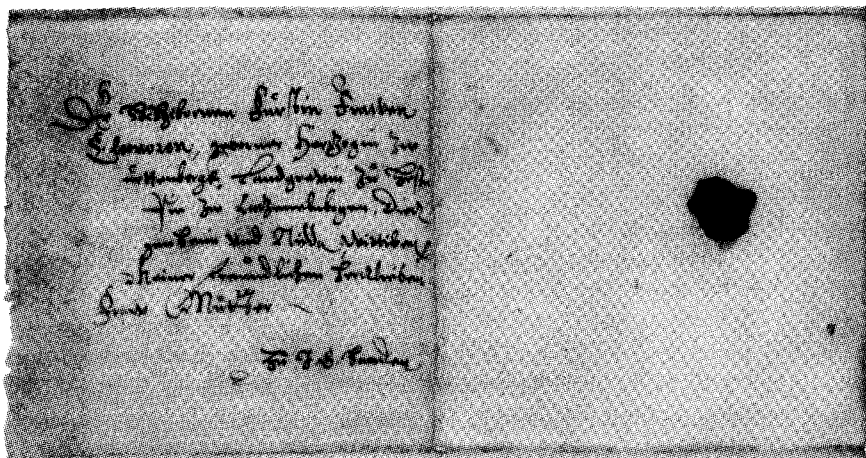 Der Hochgebornen Fürstin Frawen
Eleonoren, geborner Hertzogin zu
Württenbergk, Landgrävin zu Hessen
zu Catzenelnbogen, Dietz
Ziegenhein und Nidda, Wittiben
Meiner freundlichen hertzlieben
Fraw Mutter
Zu I. G. handen